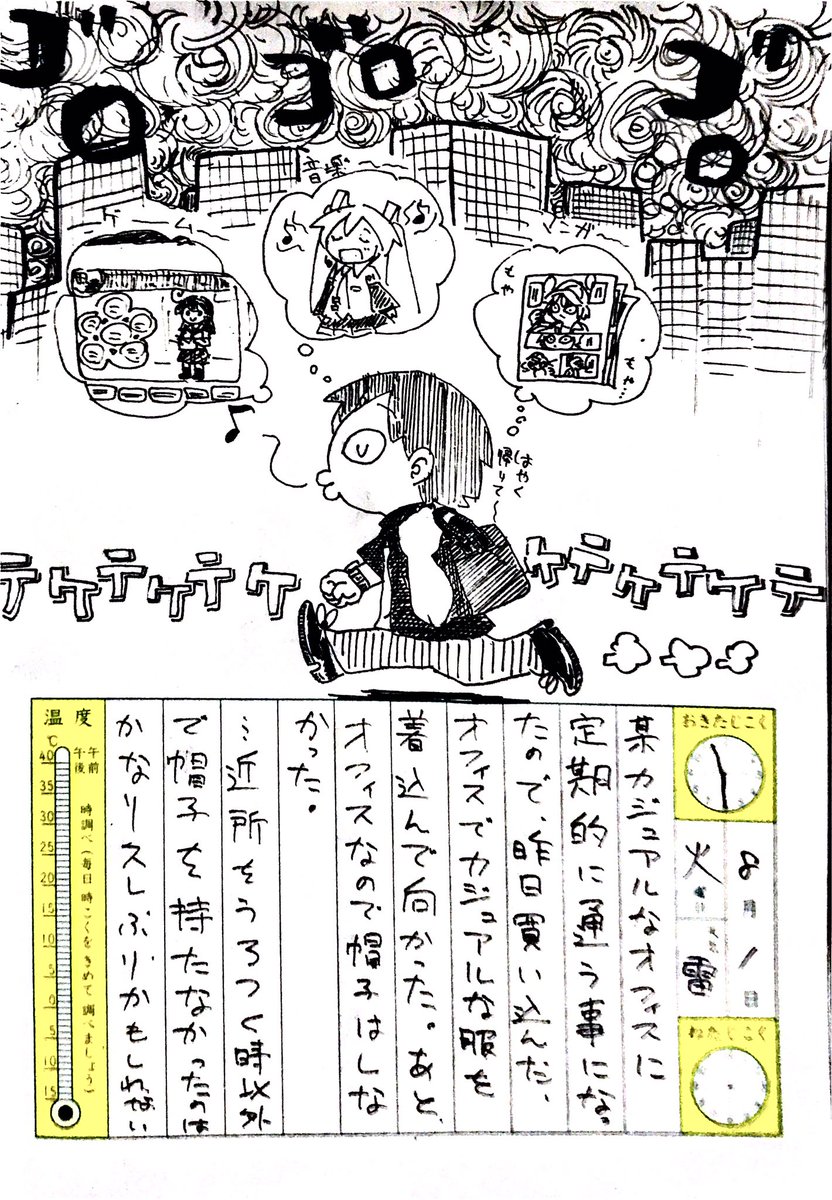 ゴロゴロゴロ
音楽〜
ゲーム〜
マンガ〜
もや
もや…
はやく
帰りて〜
テケテケテケ
ケテケテケテ
おきたじこく
8月1日
火 曜日
天気 雷
ねたじこく
某カジュアルなオフィスに
定期的に通う事にな。
たので、昨日買い込んだ、
オフィスでカジュアルな服を
着込んで向かった。あと、
オフィスなので帽子はしな
かった。
…近所をうろつく時以外
で帽子を持たなかったのは
かなりスしぶりかもしれない
温度
℃
午前
午後
時調べ(毎日時こくをきめて調べましょう)
40
35
30
25
20
15
10
5
0
5
10
15